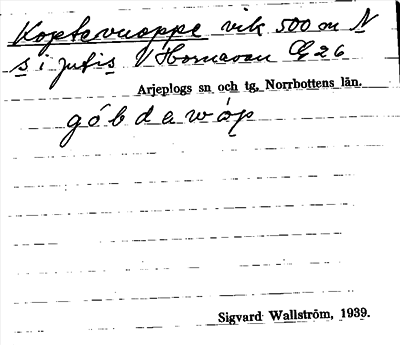 Koptavuoppe vik 500 m N
s i Jutis V Hornavan G 26
Arjeplogs sn och tg. Norrbottens län.
góbdawóp
Sigvard Wallström, 1939.